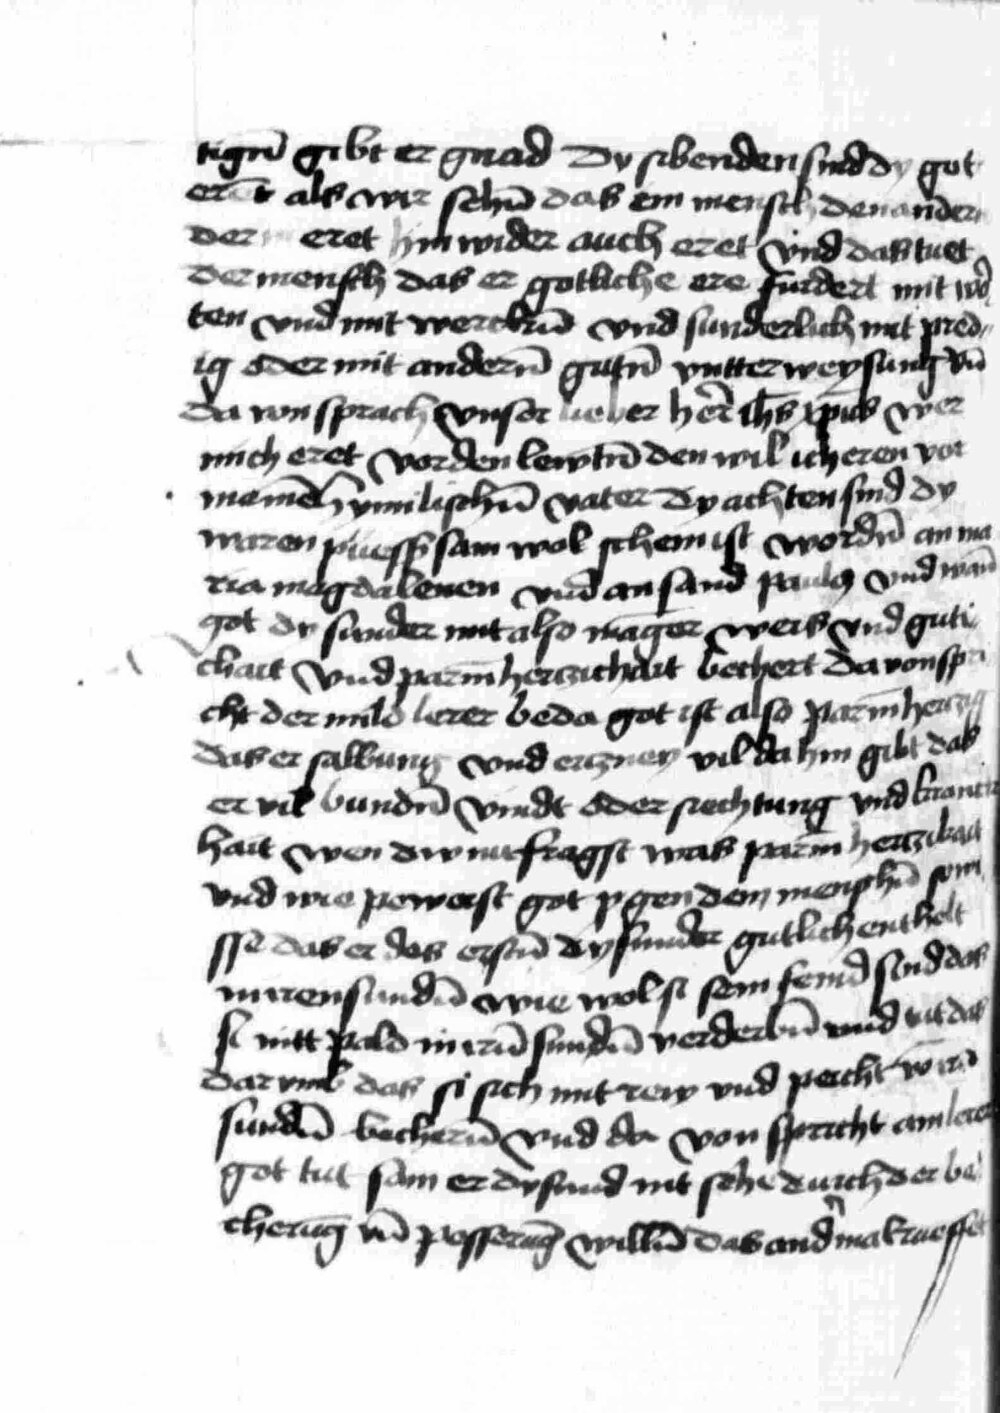 tigñ gibt er gnad Dy sibenden sind dy got
erent als wir sehñ das ein mensch den andern
der eret hin wider auch eret vnd das tuet
der mensch das er gotliche ere furdert mit wor
ten vnd mit werckhñ vnd sunderlich mit pred
ig oder mit anderñ gutñ vntterweysung vñ
da von sprach vnser lieber her̃ ihs xp̃us wer
mich eret vor den lewtñ den wil ich eren vor
meinem hymilischñ vater Dy achten sind dy
waren puessz sam wol schein ist wordñ an ma
ria magdalenen vnd an sand Paulo vnd wañ
got dy sunder mit also mãger weis vnd guti
chait vnd parm̃hertzichait bechert da von spri
cht der mild lerer beda got ist also parm̃hertzig
das er salbung vnd ertzney vil da hin gibt das
er vil bundñ vindt oder siechtung vnd kranck
hait wen dw nu fragst was parm̃hertzikait
vnd wie peweist got gen dem menschñ
das er des erstñ dy sunder gutlich enthelt
in iren sundñ wie wol si sein feind sind das
si nitt pald in irñ sundñ verderbñ vnd tut das
darumb das si sich mit rew vnd peicht võ irñ
sundñ becherñ vnd da von spricht ain lerer
got tut sam er dy sund nit sehe durch der be
cherũg vñ pesserũg willñ das ander mal